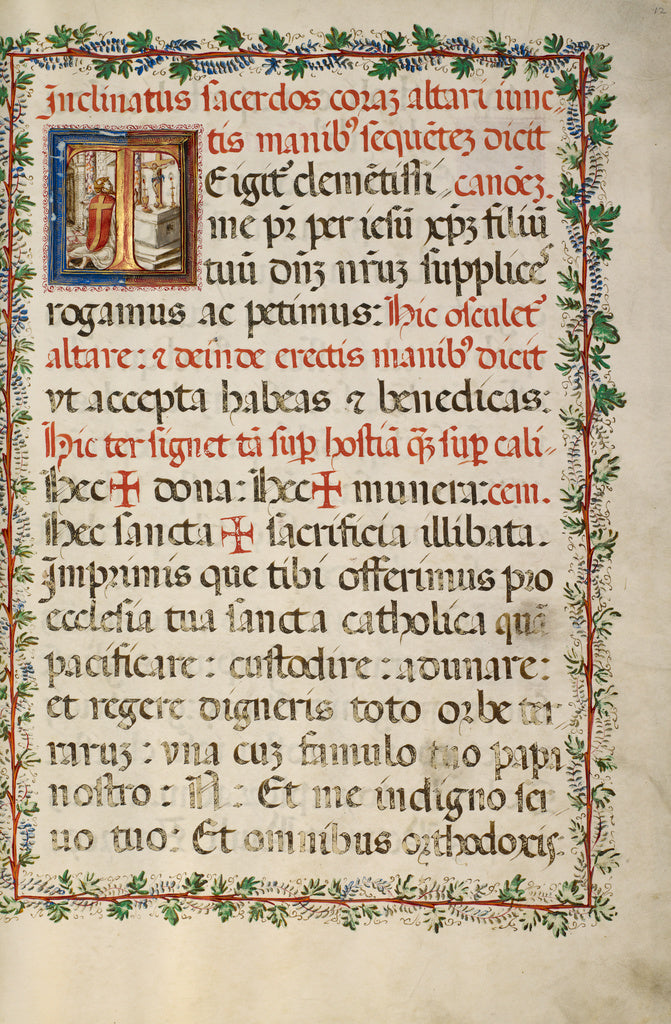 12
Inclinatus sacerdos coraȝ altari iunc-
tis manibꝰ sequētēȝ dicit
TEigit᷑ clemētissi canōēȝ.
me pr̄ per iesū xp̄ȝ filiū
tuū dn̄ȝ nr̄uȝ supplice᷑
rogamus ac petimus: Hic osculet᷑
altare: ⁊ deinde erectis manibꝰ dicit
vt accepta habeas ⁊ benedicas:
Hic ter signet tā suꝑ hostiā qȝ̄ suꝑ cali-
Hec ✠ dona: Hec ✠ munera: cem.
Hec sancta ✠ sacrificia illibata.
Imprimis que tibi offerimus pro
ecclesia tua sancta catholica quā
pacificare: custodire: adunare:
et regere digneris toto orbe ter
raruȝ: vna cuȝ famulo tuo papa
nostro: N: Et me indigno ser
uo tuo: Et omnibus orthodoxis